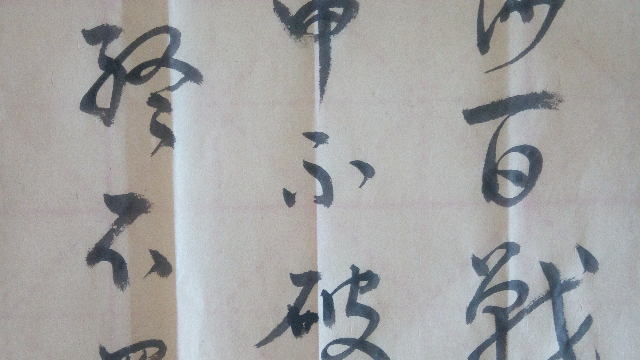 沙百戰
甲不破
終不